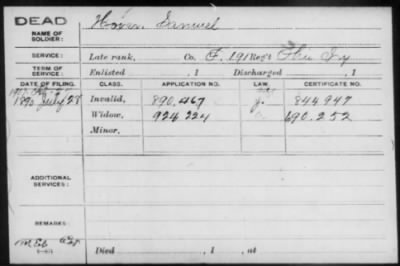 DEAD
NAME OF SOLDIER: Samuel
SERVICE: Late rank, Co. F, 191 Reg't Ohio Inf
TERM OF SERVICE: Enlisted , 1 Discharged , 1
DATE OF FILING. CLASS. APPLICATION NO. LAW. CERTIFICATE NO.
1890 July 28 Invalid, 890.467 J. 844947
Widow, 924224 690.252
Minor,
ADDITIONAL SERVICES:
REMARKS:
Died , 1 , at